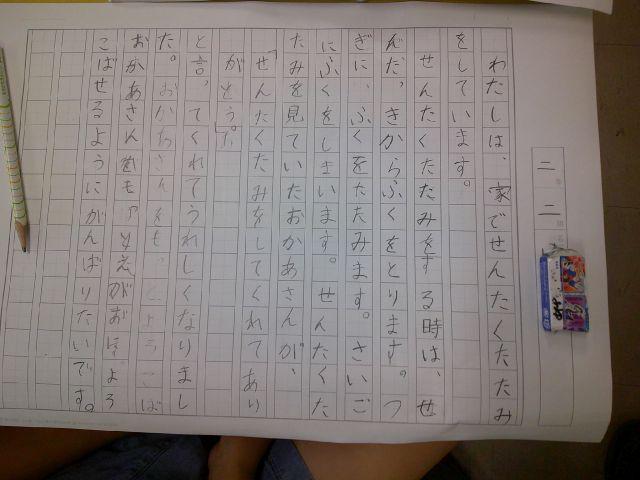 二 二
わたしは、家でせんたくたたみ
をしています。
せんたくたたみをする時は、せ
んだ、きからふくをとります。つ
ぎに、ふくをたたみます。さいご
にふくをしまいます。せんたくた
たみを見ていたおかあさんが、
「せんたくたみをしてくれてあり
がとう。」
と言、てくれてうれしくなりまし
た。おかあさんをも
おかあさんをも
こばせるようにがんばりたいです。